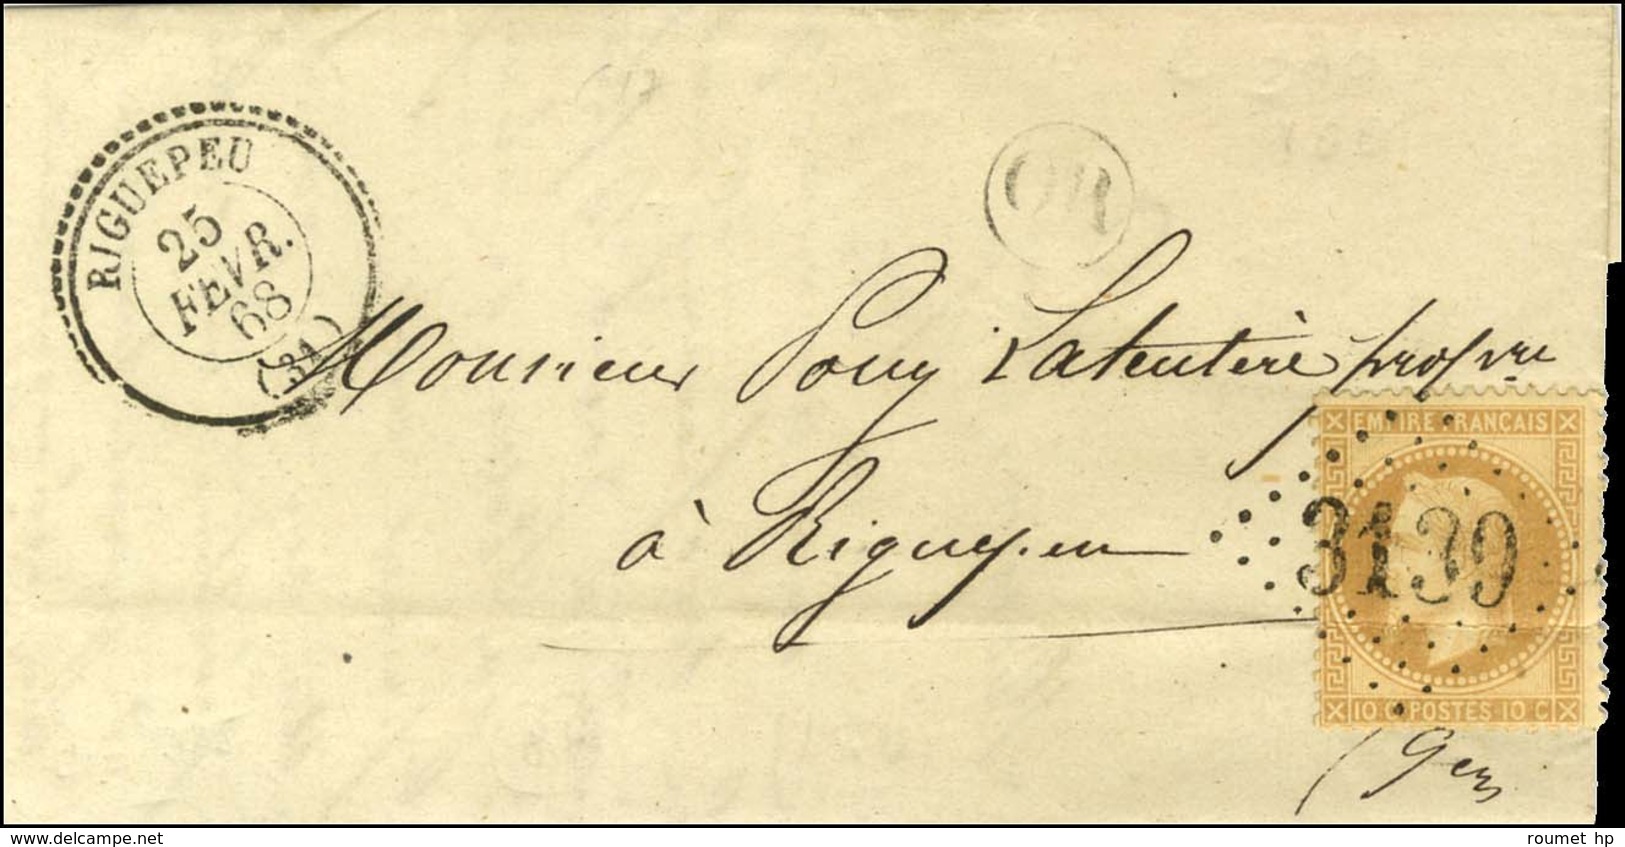 RIGUEPEU
25
FEVR.
68
(31)
OR
Monsieur Pouy Latentère propre
à Riguepeu
EMPIRE FRANCAIS
3139
10 C POSTES 10 C
(Gers
delcampe.net
roumet hp